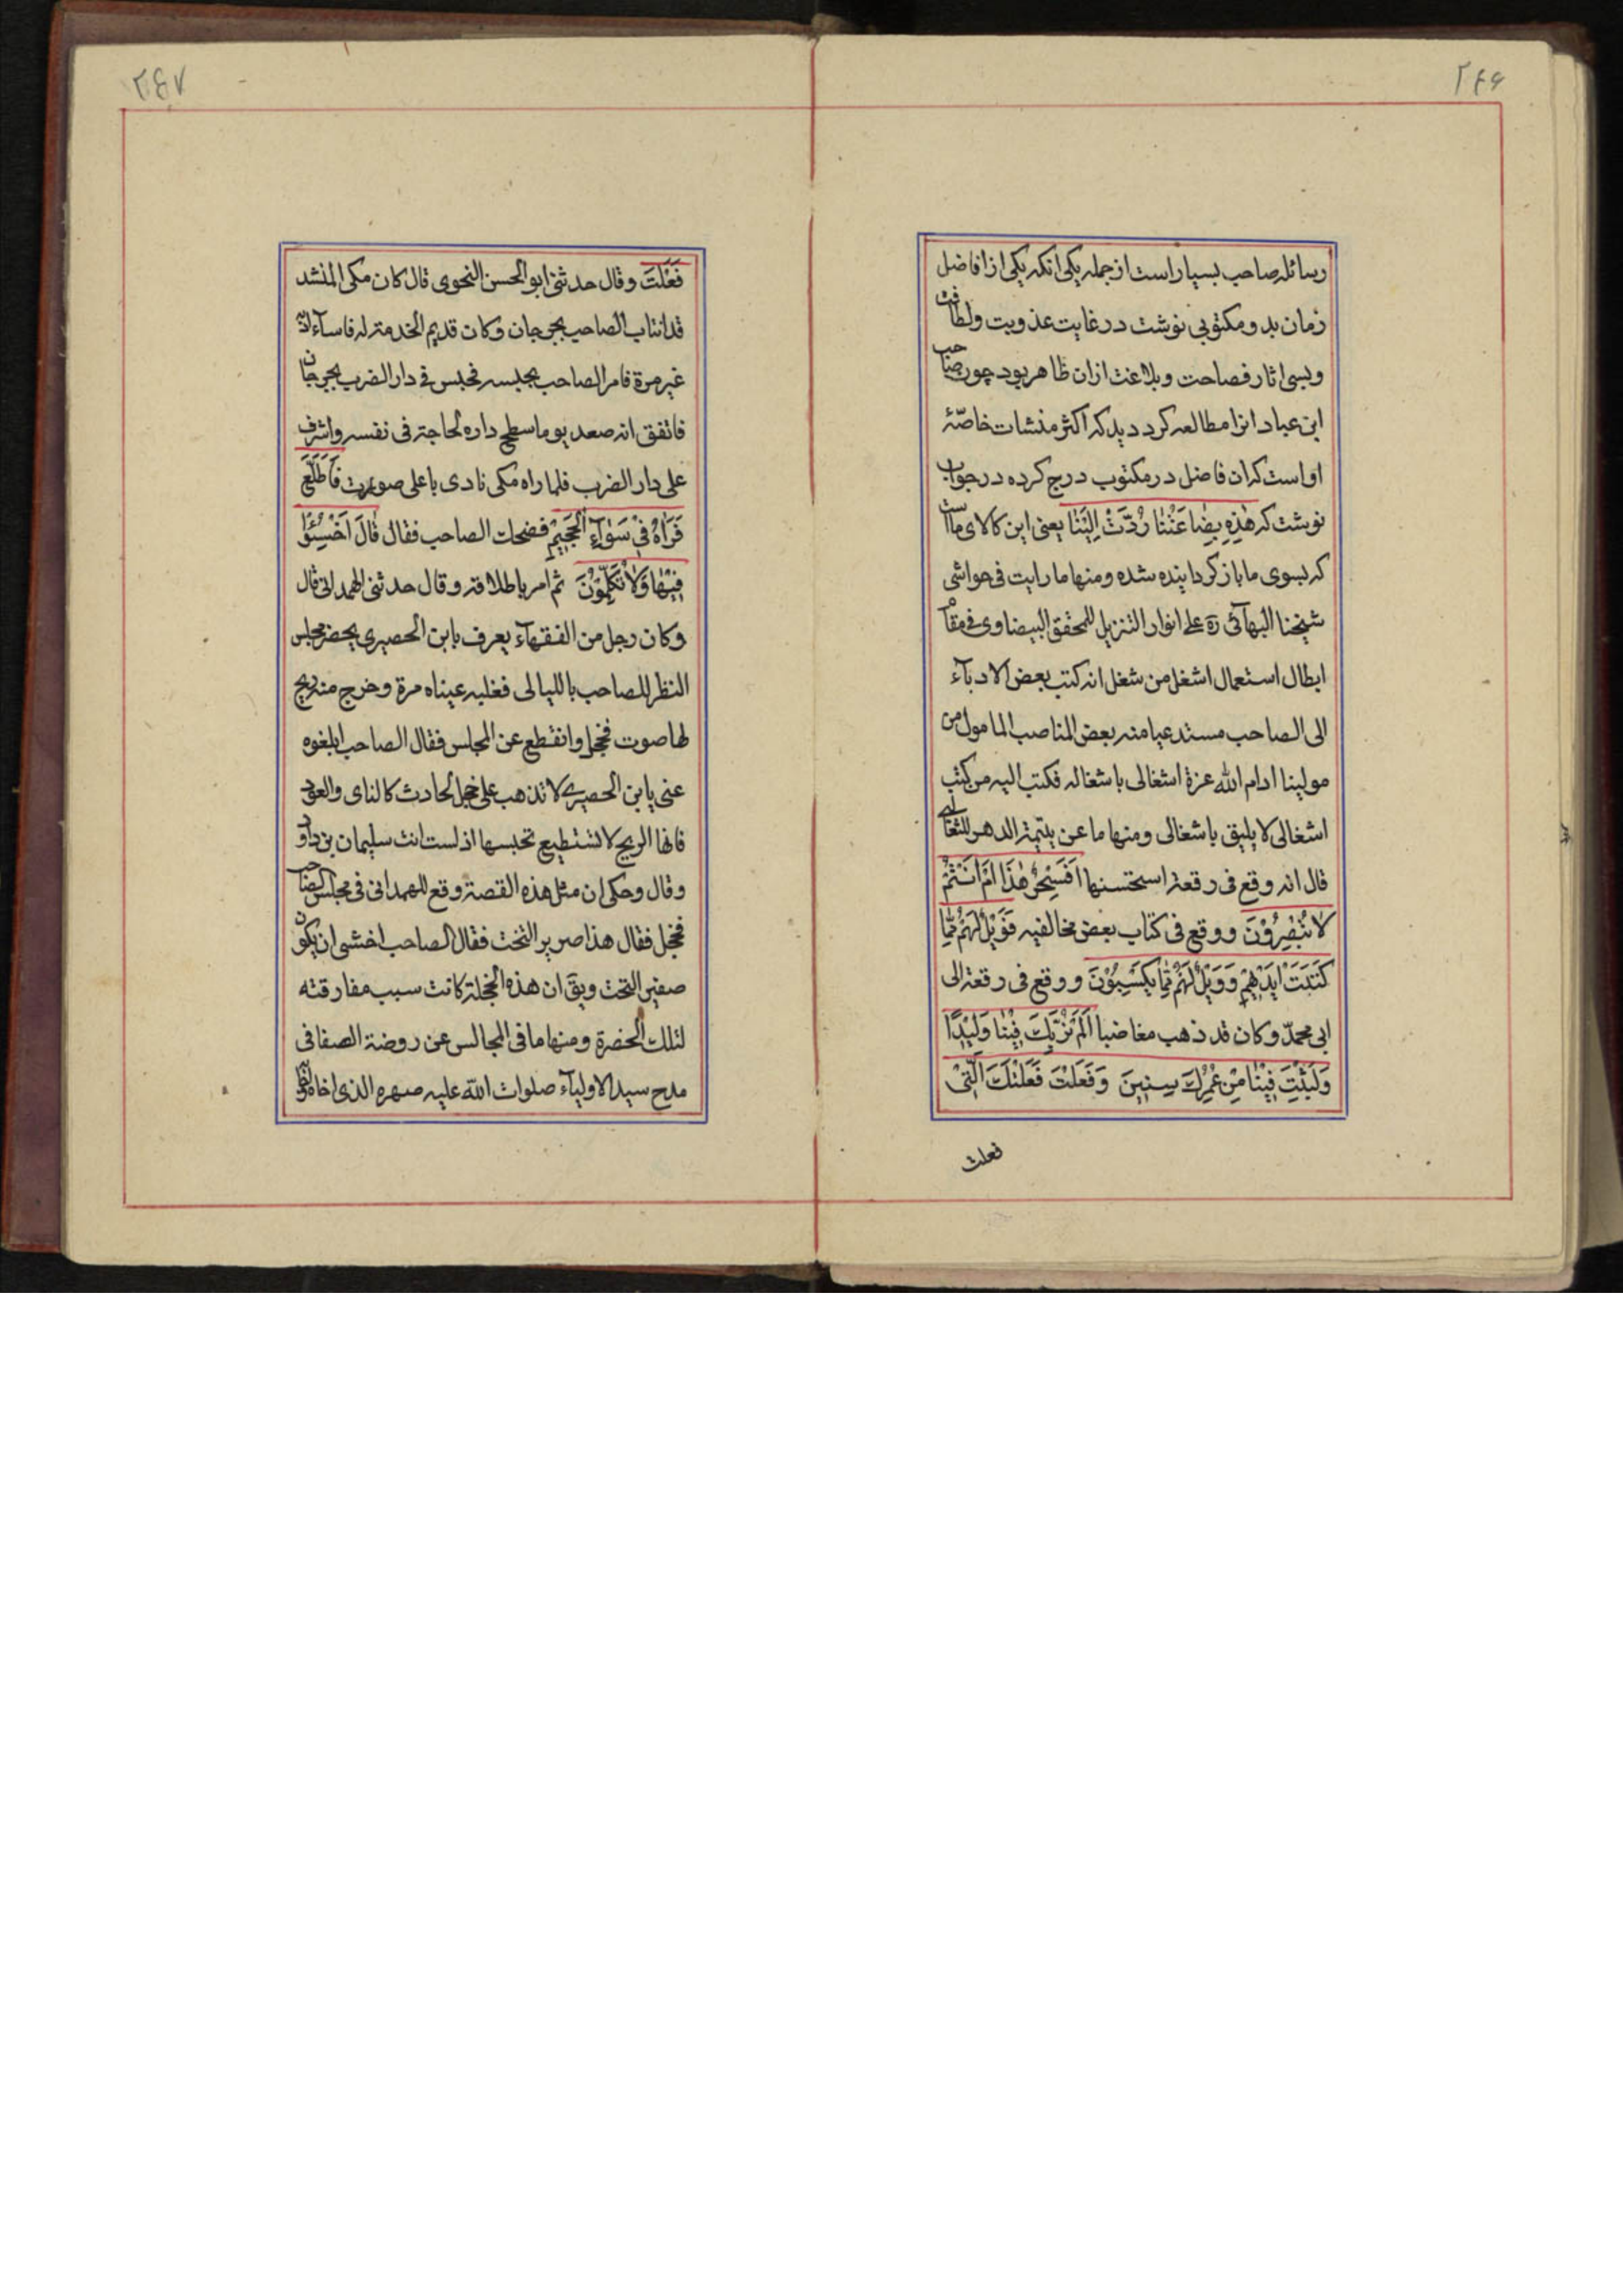 ٢٤۶
رسائل صاحب بسیار است از جمله یکی انکه یکی از افاضل
زمان بد و مکتوبی نوشت در غایت عذوبت و لطافت
و بسی اثار فصاحت و بلاغت ازان ظاهر بود چون صاحب
ابن عباد انرا مطالعه کرد دید که اکثر منشات خاصّهٔ
او است که ان فاضل در مکتوب درج کرده در جواب
نوشت که هٰذِهِ بِضٰاعَتُنٰا رُدَّتْ اِلَیْنٰا یعنی این کالای ما است
که بسوی ما باز کردانیده شده و منها ما رایت فی حواشی
شیخنا البهآئی ره علی انوار التنزیل للمحقق البیضاوی فی مقام
ابطال استعمال اشغل من شغل انه کتب بعض الادبآء
الی الصاحب مستدعیا منه بعض المناصب المامول من
مولینا ادام الله عزة اشغالی باشغاله فکتب الیه من کتب
اشغالی لا یلیق باشغالی و منها ما عن یتیمة الدهر للثعالبی
قال انه وقع فی رقعة استحسنها اَفَسِحْرٌ هٰذٰا اَمْ اَنْتُمْ
لاٰ تُبْصِرُوْنَ و وقع فی کتاب بعض مخالفیه فَوَیْلٌ لَهُمْ مِمّٰا
کَتَبَتْ اَیْدِیْهِمْ وَ وَیْلٌ لَهُمْ مِمّٰا یَکْسِبُوْنَ و وقع فی رقعة الی
ابی محمدّ و کان قد ذهب مغاضبا اَلَمْ نُرَبِّکَ فِیْنٰا وَلِیْدًا
وَ لَبِثْتَ فِیْنٰا مِنْ عُمُرِکَ سِنِیْنَ وَ فَعَلْتَ فَعْلَتَکَ الَّتِیْ
فعلت
٢٤٧
فَعَلْتَ و قال حدثنی ابو الحسن النحوی قال کان مکی المنشد
قد انتاب الصاحب بجرجان و کان قدیم الخدمة له فاسآء ادبه
غیر مرة فامر الصاحب بحبسه فحبس فی دار الضرب بجرجان
فاتفق انه صعد یوما سطح داره لحاجة فی نفسه و اشرف
علی دار الضرب فلما راه مکی نادی باعلی صوته فَاطَّلَعَ
فَرَاٰهُ فِیْ سَوٰآءِ الْجَحِیْمِ فضحک الصاحب فقال قٰالَ اخْسَئُوْا
فِیْهٰا وَلاٰ تُکَلِّمُوْنَ ثم امر باطلاقه و قال حدثنی الهمدانی قال
و کان رجل من الفقهآء یعرف بابن الحصیری یحضر مجلس
النظر للصاحب باللیالی فغلبه عیناه مرة و خرج منه ریح
لها صوت فخجل و انقطع عن المجلس فقال الصاحب ابلغوه
عنی یابن الحصیری لا تذهب علی خجل لحادث کالنای و العود
فانها الریح لا تستطیع تحبسها اذ لست انت سلیمان بن داود
و قال و حکی ان مثل هذه القصة وقع للهمدانی فی مجلس الصاحب
فخجل فقال هذا صریر التخت فقال الصاحب اخشی ان یکون
صفیر التحت و یق ان هذه الخجلة کانت سبب مفارقته
لتلک الحضرة و منها ما فی المجالس عن روضة الصفا فی
مدح سید الاولیآء صلوات الله علیه صهره الذی اخاه